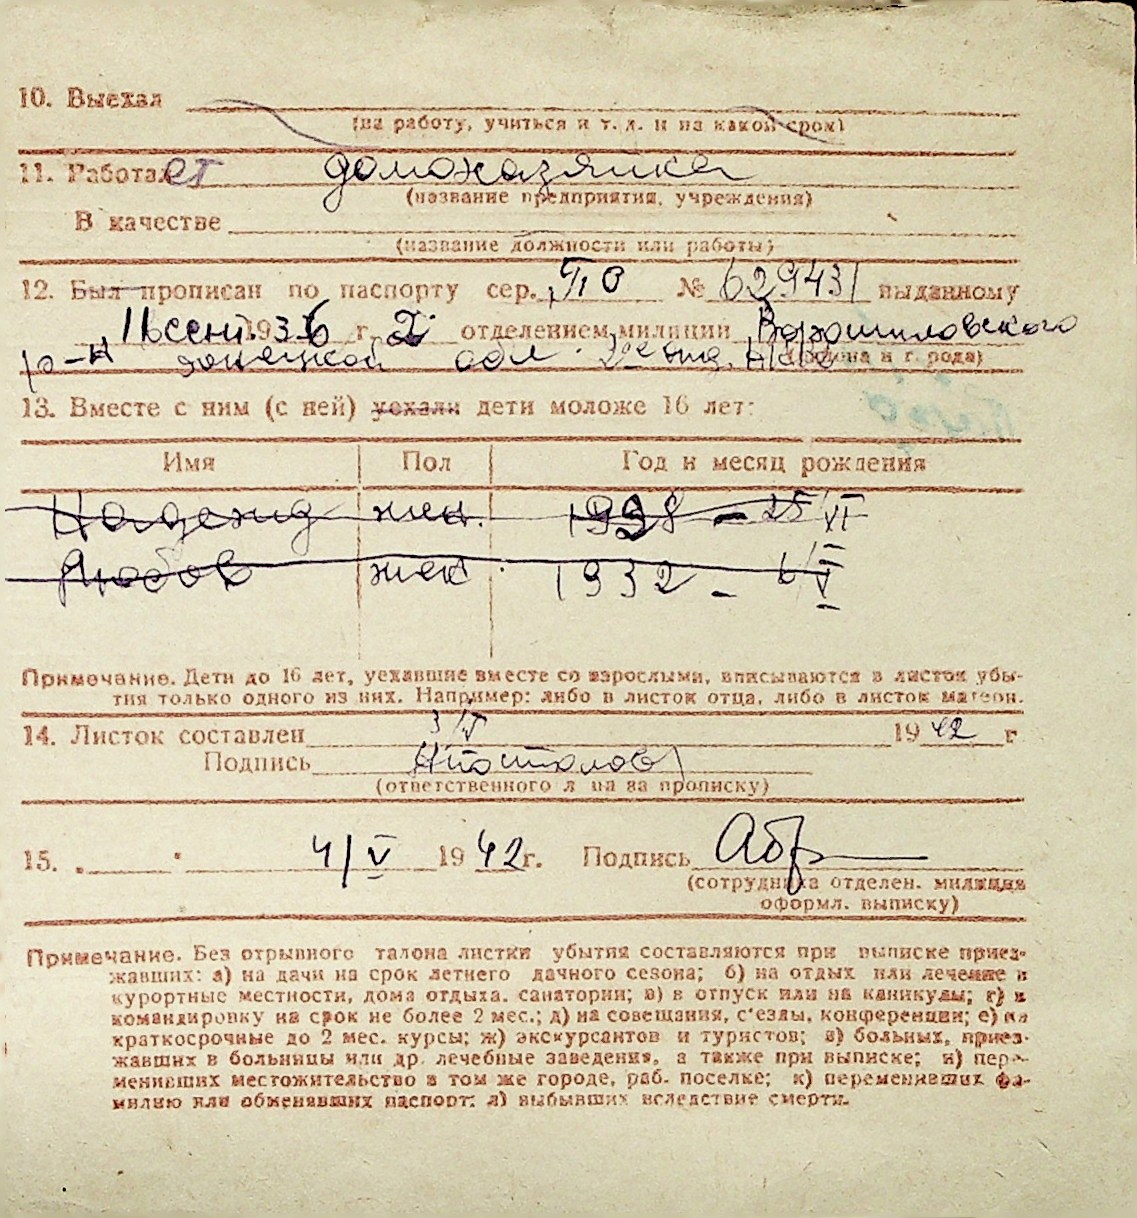 10. Выехал
(на работу, учиться и т. д. и на какой срок)
11. Работает домохазяйка
(название предприятия, учреждения)
В качестве
(название должности или работы)
12. Был прописан по паспорту сер. ПО № 629431 выданному
11 сент. 1936 г. 2 отделением милиции Ворошиловского
р-н донецкой обл.
(района и г. рода)
13. Вместе с ним (с ней) уехали дети моложе 16 лет:
Имя Пол Год и месяц рождения
Надежид жен. 1938 - 25/VI
Любов жен 1932 - 6/V
Примечание. Дети до 16 лет, уехавшие вместе со взрослыми, вписываются в листок убы-
тия только одного из них. Например: либо в листок отца, либо в листок матери.
14. Листок составлен 3/V 1942 г
Подпись Апостолов
(ответственного л ца за прописку)
15. 4/V 1942 г. Подпись Абр
(сотрудника отделен. милиции
оформл. выписку)
Примечание. Без отрывного талона листки убытия составляются при выписке приез-
жавших: а) на дачи на срок летнего дачного сезона; б) на отдых или лечение в
курортные местности, дома отдыха, санатории; в) в отпуск или на каникулы; г) в
командировку на срок не более 2 мес.; д) на совещания, с'езды, конференции; е) на
краткосрочные до 2 мес. курсы; ж) экскурсантов и туристов; з) больных, приез-
жавших в больницы или др. лечебные заведения, а также при выписке; и) пере-
менивших местожительство в том же городе, раб. поселке; к) переменивших фа-
милию или обменявших паспорт; л) выбывших вследствие смерти.